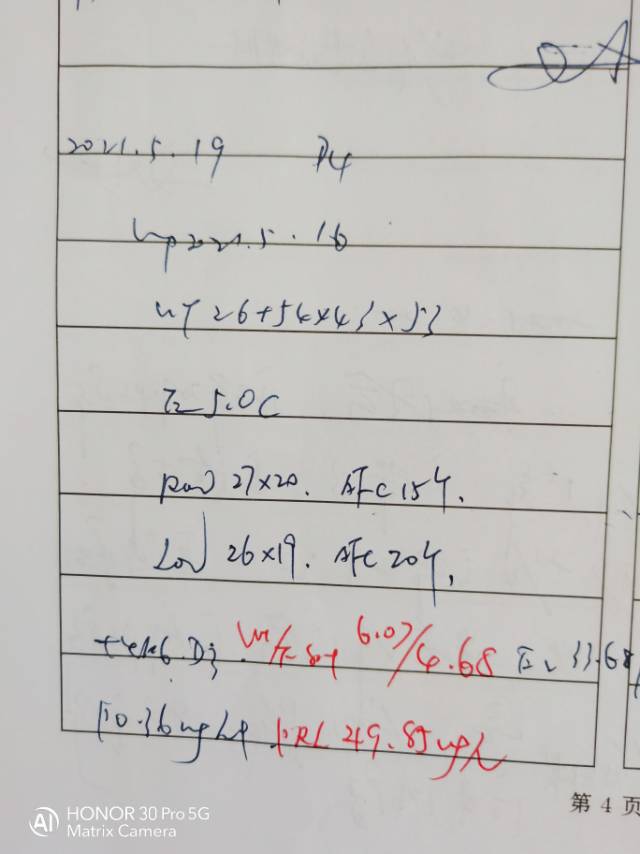 2021.5.19 D4
Lmp2021.5.16
UT 26+54×43×53
En5.0C
Rov 27×20. AFC 15个.
Lov 26×19. AFC 20个.
6.07/4.68 E2 33.68
P0.36ng/ml PRL 49.85ug/L
第 4 页
HONOR 30 Pro 5G
Matrix Camera